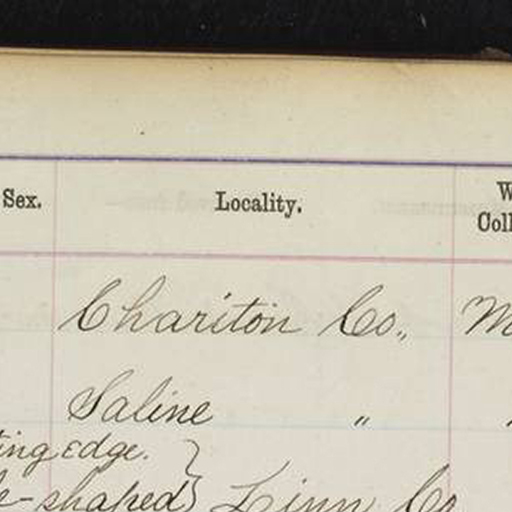 Sex. Locality. W
Coll
Chariton Co., M
Saline "
ting edge.
e-shaped} Linn Co